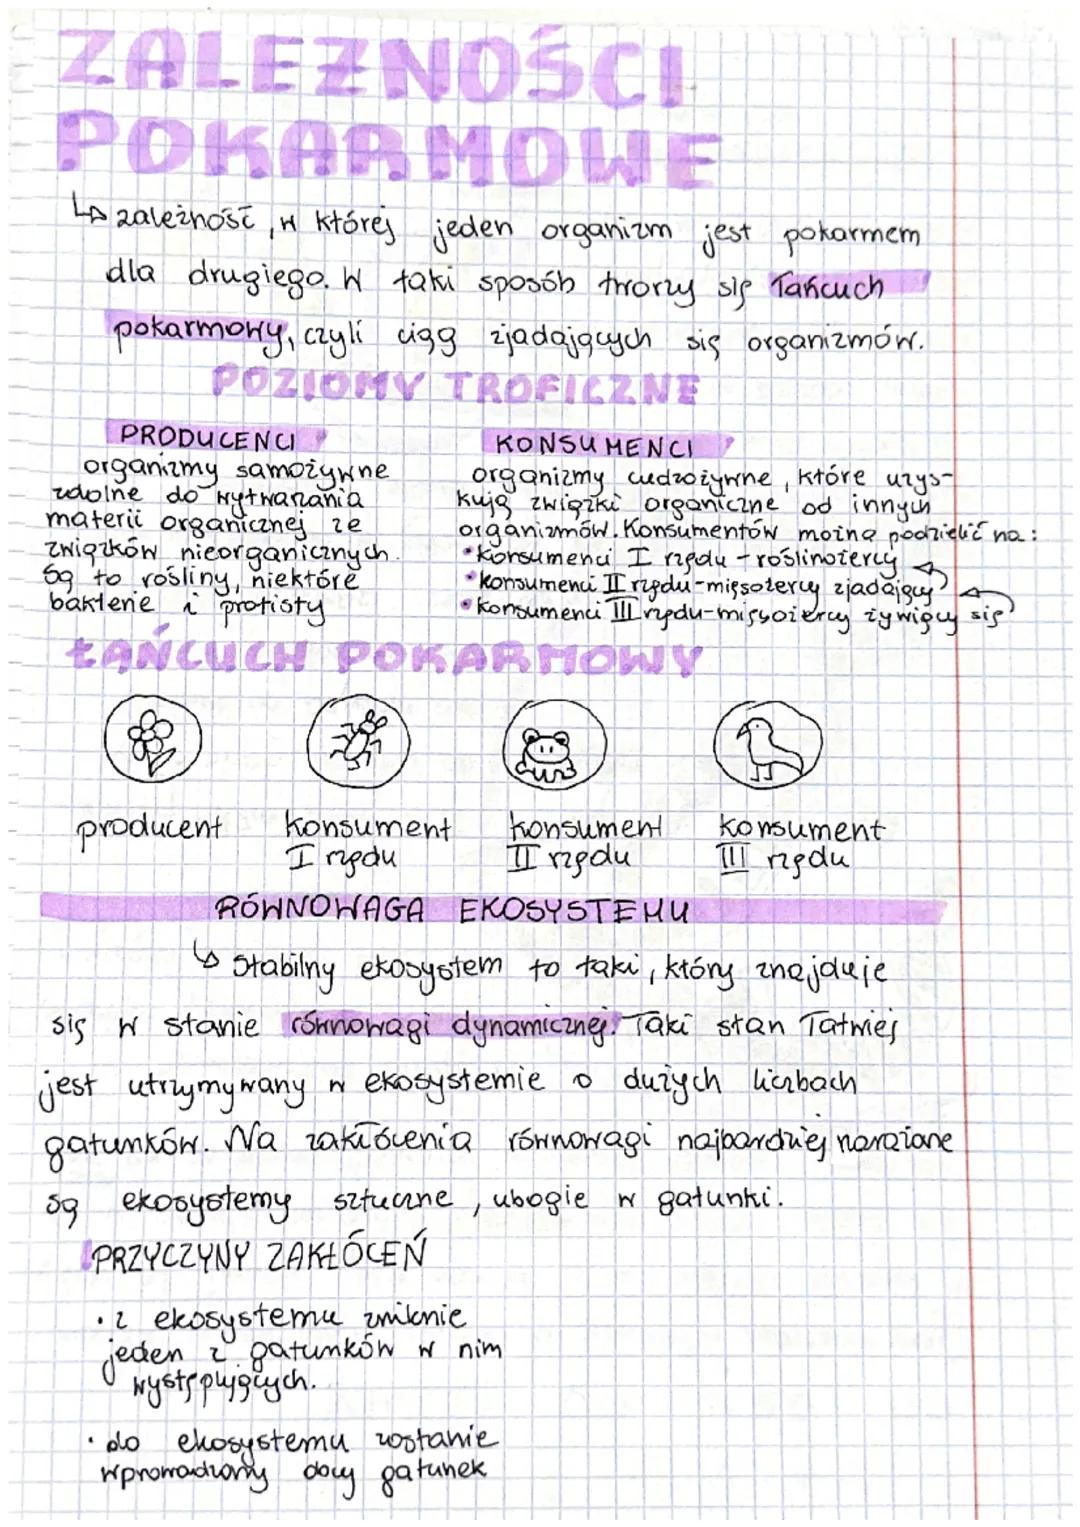 ZALEŻNOŚCI
POKARMOWE
↳ zależność, w której jeden organizm jest pokarmem
dla drugiego. W taki sposób tworzy się łańcuch
pokarmowy, czyli ciąg zjadających się organizmów.
POZIOMY TROFICZNE
PRODUCENCI
organizmy samożywne
zdolne do wytwarzania
materii organicznej ze
związków nieorganicznych.
Są to rośliny, niektóre
bakterie i protisty
KONSUMENCI
organizmy cudzożywne, które uzys-
kują związki organiczne od innych
organizmów. Konsumentów można podzielić na:
• Konsumenci I rzędu - roślinożercy
• konsumenci II rzędu - mięsożercy zjadający
• konsumenci III rzędu - mięsożercy żywiący się
ŁAŃCUCH POKARMOWY
producent
konsument
I rzędu
konsument
II rzędu
konsument
III rzędu
RÓWNOWAGA EKOSYSTEMU
↳ Stabilny ekosystem to taki, który znajduje
się w stanie równowagi dynamicznej. Taki stan łatwiej
jest utrzymywany w ekosystemie o dużych liczbach
gatunków. Na zakłócenia równowagi najbardziej narażone
są ekosystemy sztuczne, ubogie w gatunki.
PRZYCZYNY ZAKŁÓCEŃ
• z ekosystemu zniknie
jeden z gatunków w nim
występujących.
• do ekosystemu zostanie
wprowadzony gatunek